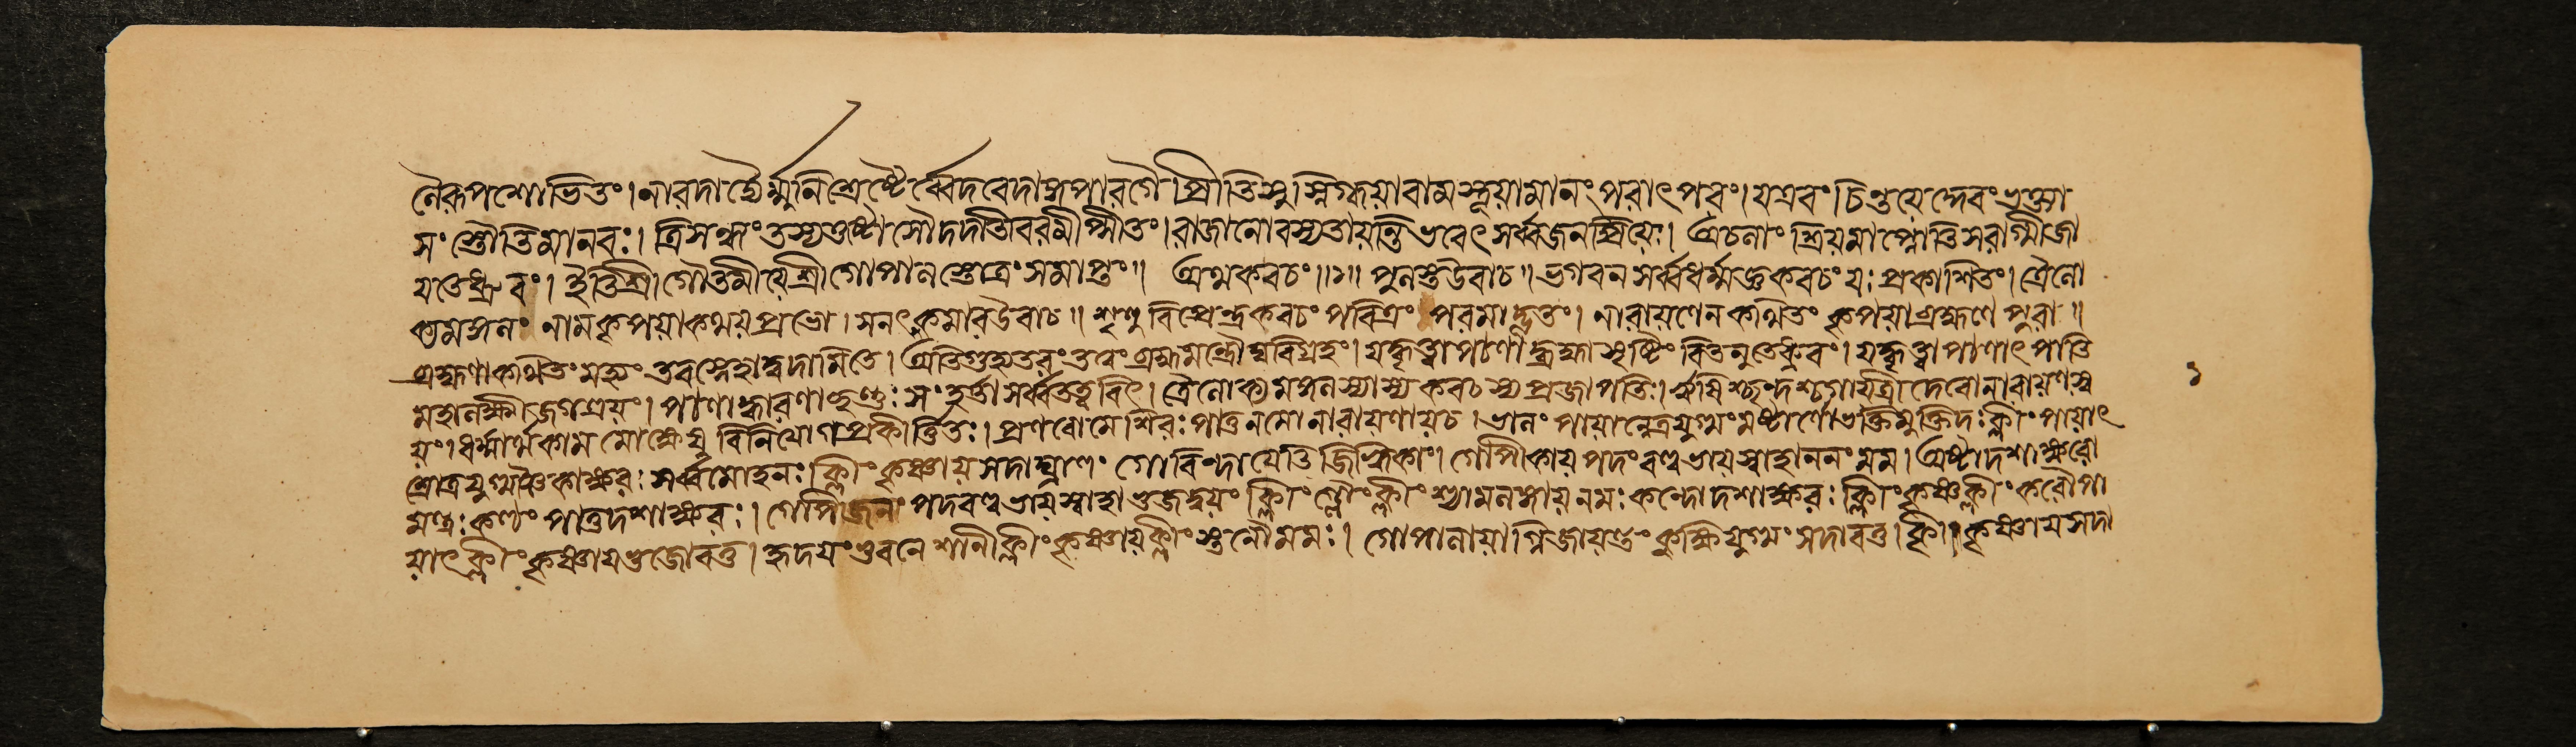 নৈরূপশোভিতং। নারদাদ্যৈর্ম্মুনিশ্রেষ্ঠৈর্ব্বেদবেদাঙ্গপারগৈ। প্রীতিসুস্নিগ্ধয়াবামস্তূয়ামানং পরাৎপরং। যএবং চিন্তয়েদ্দেবং ভক্ত্যা
সংস্তৌতিমানবঃ। ত্রিসন্ধ্যং তস্যতুষ্টোসৌদদাতিবরমীপ্সীতং। রাজানোবস্যতায়ন্তি ভবেৎ সর্ব্বজনপ্রিয়ঃ। অচলাং শ্রিয়মাপ্নোতিসবাগ্মীজা
য়তেধ্রুবং। ইতিশ্রীগৌতমীয়ে শ্রীগোপালস্তোত্রং সমাপ্তং॥ অথকবচং॥১॥ পুলস্তউবাচ॥ ভগবন সর্ব্বধর্ম্মজ্ঞকবচং যঃ প্রকাশিতং। ত্রৈলো
ক্যমঙ্গলং নামকৃপয়াকথয়প্রভো। সনৎকুমারউবাচ॥ শৃণু বিপ্রেন্দ্রকবচং পবিত্রং পরমাদ্ভুতং। নারায়ণেনকথিতং কৃপয়াব্রহ্মণে পুরা॥
ব্রহ্মণাকথিতং মহ্যং তবস্নেহাদ্বদামিতে। অতিগুহ্যতরং তত্ত্বং ব্রহ্মমন্ত্রৌঘবিগ্রহং। যদ্ধৃত্বাপঠণাদ্ব্রহ্মাসৃষ্টিং বিতনুতেধ্রুবং। যদ্ধৃত্বাপঠণাৎ পাতি
মহালক্ষ্মীর্জগত্রয়ং। পঠণাদ্ধারণাচ্ছম্ভুঃ সংহর্ত্তাসর্ব্বতত্ত্ববিৎ। ত্রৈলোক্যমঙ্গলস্যাস্য কবচস্য প্রজাপতিঃ। ঋষিশ্ছন্দশ্চগায়ত্রী দেবোনারায়ণস্ব
য়ং। ধর্ম্মার্থকামমোক্ষেষু বিনিয়োগপ্রকীর্ত্তিতঃ। প্রণবোমেশিরঃ পাতুনমোনারায়ণায়চ। ভালং পায়ান্নেত্রযুগ্মংমষ্টার্ণোভক্তিমুক্তিদঃ ক্লীং পায়াৎ
শ্রোত্রযুগ্মঞ্চৈকাক্ষরঃ সর্ব্বমোহনঃ ক্লীং কৃষ্ণায় সদাঘ্রাণং গোবিন্দায়েতি জিহ্বিকাং। গোপীকায় পদং বল্লভায়স্বাহাননং মম। অষ্টাদশাক্ষরো
মন্ত্রঃ কণ্ঠং পাতুদশাক্ষরঃ। গোপিজন পদবল্লভায়স্বাহাভুজদ্বয়ং ক্লীং গ্লৌং ক্লীং শ্যামলাঙ্গায় নমঃ স্কন্ধোদশাক্ষরঃ ক্লীং কৃষ্ণক্লীং করৌপা
য়াৎ ক্লীং কৃষ্ণায়ভুজোবতু। হৃদয়ং ভুবনেশানীক্লীং কৃষ্ণায়ক্লীং স্তনৌমমঃ। গোপালায়াগ্নিজায়ান্তং কুক্ষিযুগ্মং সদাবতু। ক্লীং কৃষ্ণায়সদা